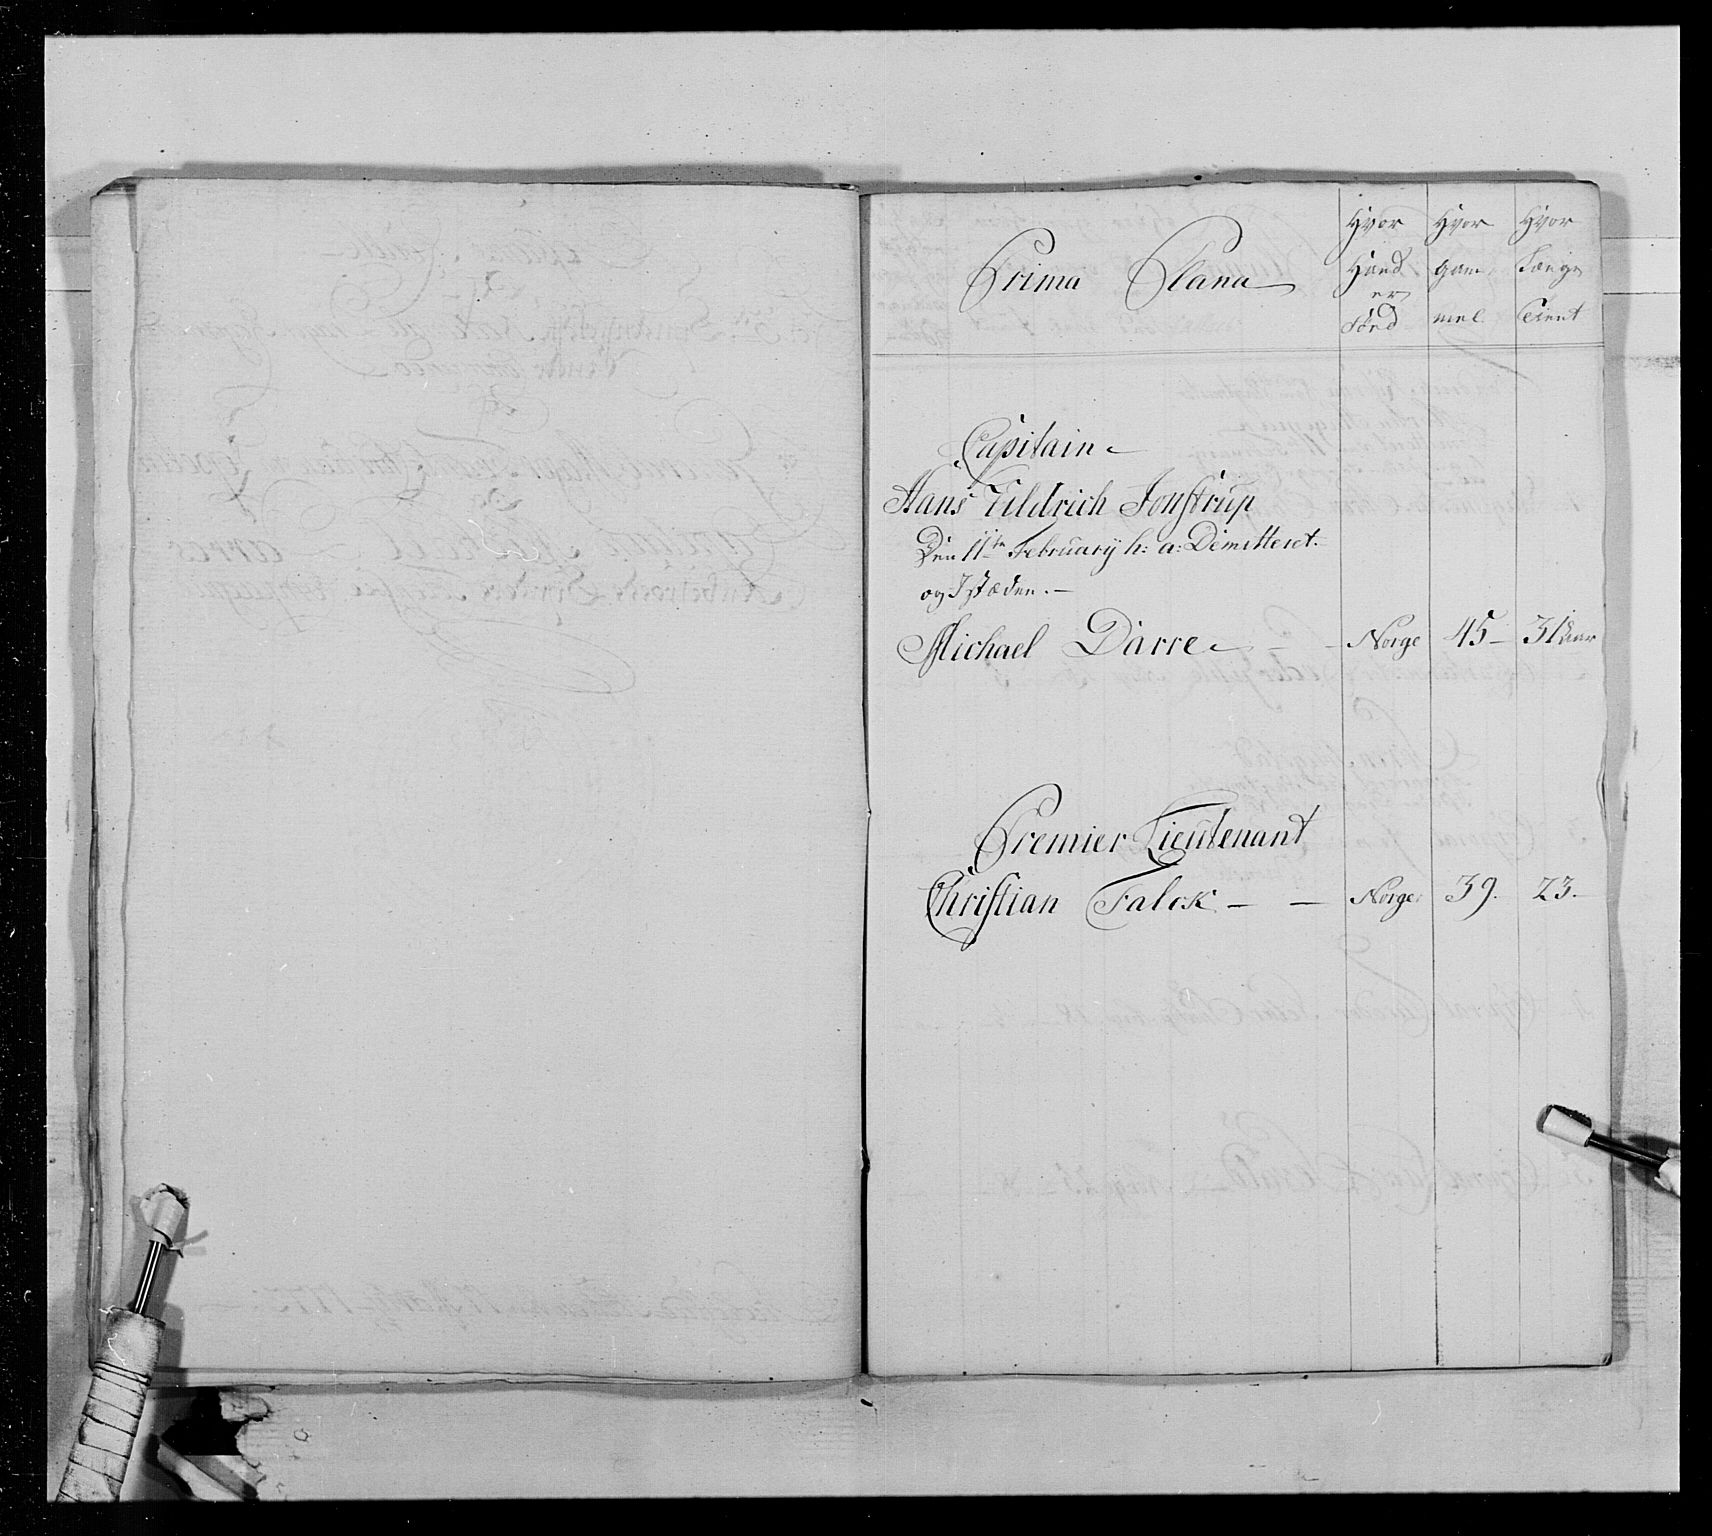 Prima Plana
Hvor Hand er Fönd
Hvor gam mel
Hvor Længe Tient
Capitain
Hans Uldrich Jonstrup
Den 11te Februarÿ h: a: Dimitteret.
og I stæden. —
Michael Darre — Norge 45 — 31 Aar
Premier Lieutenant
Christian Falck — — Norge 39. 23.